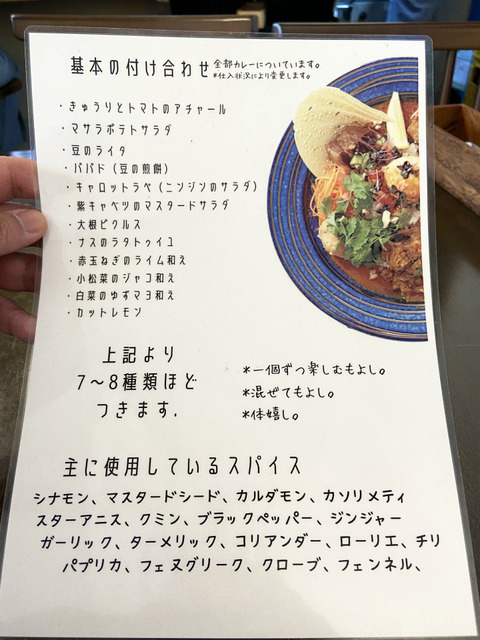 基本の付け合わせ 全部カレーについています。
*仕入状況により変更します。
・きゅうりとトマトのアチャール
・マサラポテトサラダ
・豆のライタ
・パパド（豆の煎餅）
・キャロットラペ（ニンジンのサラダ）
・紫キャベツのマスタードサラダ
・大根ピクルス
・ナスのラタトゥイユ
・赤玉ねぎのライム和え
・小松菜のジャコ和え
・白菜のゆずマヨ和え
・カットレモン
上記より
7〜8種類ほど
つきます.
*一個ずつ楽しむもよし。
*混ぜてもよし。
*体嬉し。
主に使用しているスパイス
シナモン、マスタードシード、カルダモン、カソリメティ
スターアニス、クミン、ブラックペッパー、ジンジャー
ガーリック、ターメリック、コリアンダー、ローリエ、チリ
パプリカ、フェヌグリーク、クローブ、フェンネル、